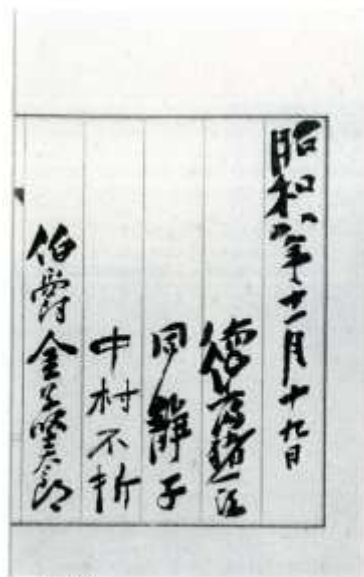 昭和年十一月十九日
德富猪一郎
同靜子
中村不折
伯爵金子堅太郎